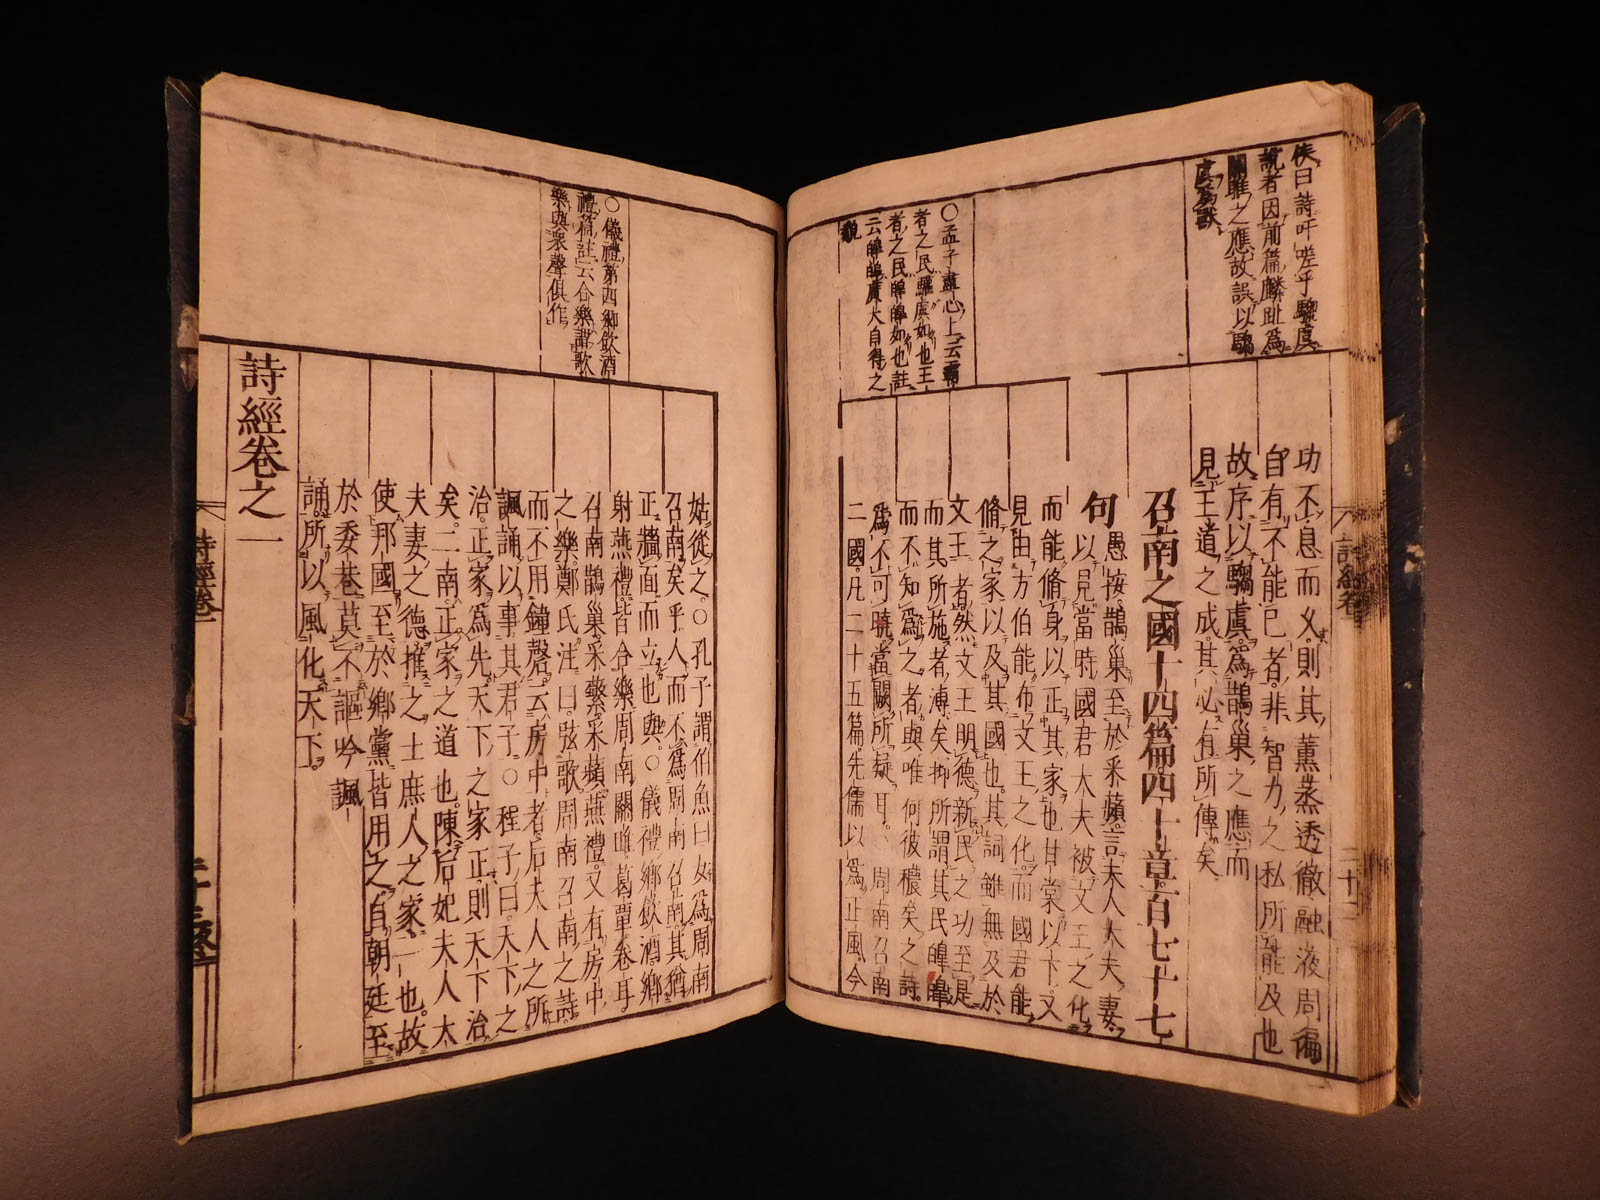 侯曰詩吁嗟乎騶虞
說者因前篇麟趾為
關雎之應故誤以騶
虞為獸
功不息而久則其薰蒸透徹融液周徧
自有不能已者非智力之私所能及也
故序以騶虞為鵲巢之應而
見王道之成其必有所傳矣
召南之國十四篇四十章百七十七
句愚按鵲巢至於采蘋言夫人大夫妻
以見當時國君大夫被文王之化
而能脩身以正其家也甘棠以下又
見由方伯能布文王之化而國君能
脩之家以及其國也其詞雖無及於
文王者然文王明德新民之功至是
而其所施者溥矣抑所謂其民皞皞
而不知為之者與唯何彼穠矣之詩
為不可曉當闕所疑耳周南召南
二國凡二十五篇先儒以為正風今
○孟子盡心上云霸
者之民驩虞如也王
者之民皞皞如也註
云皞皞廣大自得之
貌
姑從之○孔子謂伯魚曰女為周南
召南矣乎人而不為周南召南其猶
正牆面而立也與○儀禮鄉飲酒鄉
射燕禮皆合樂周南關雎葛覃卷耳
召南鵲巢采蘩采蘋燕禮又有房中
之樂鄭氏注曰弦歌周南召南之詩
而不用鐘聲云房中者后夫人之所
諷誦以事其君子○程子曰天下之
治正家為先天下之家正則天下治
矣二南正家之道也陳后妃夫人大
夫妻之德推之士庶人之家一也故
使邦國至於鄉黨皆用之自朝廷至
於委巷莫不謳吟諷
誦所以風化天下
○儀禮第四鄉飲酒
禮篇註云合樂謂歌
樂與衆聲俱作
詩經卷之一
詩經卷一